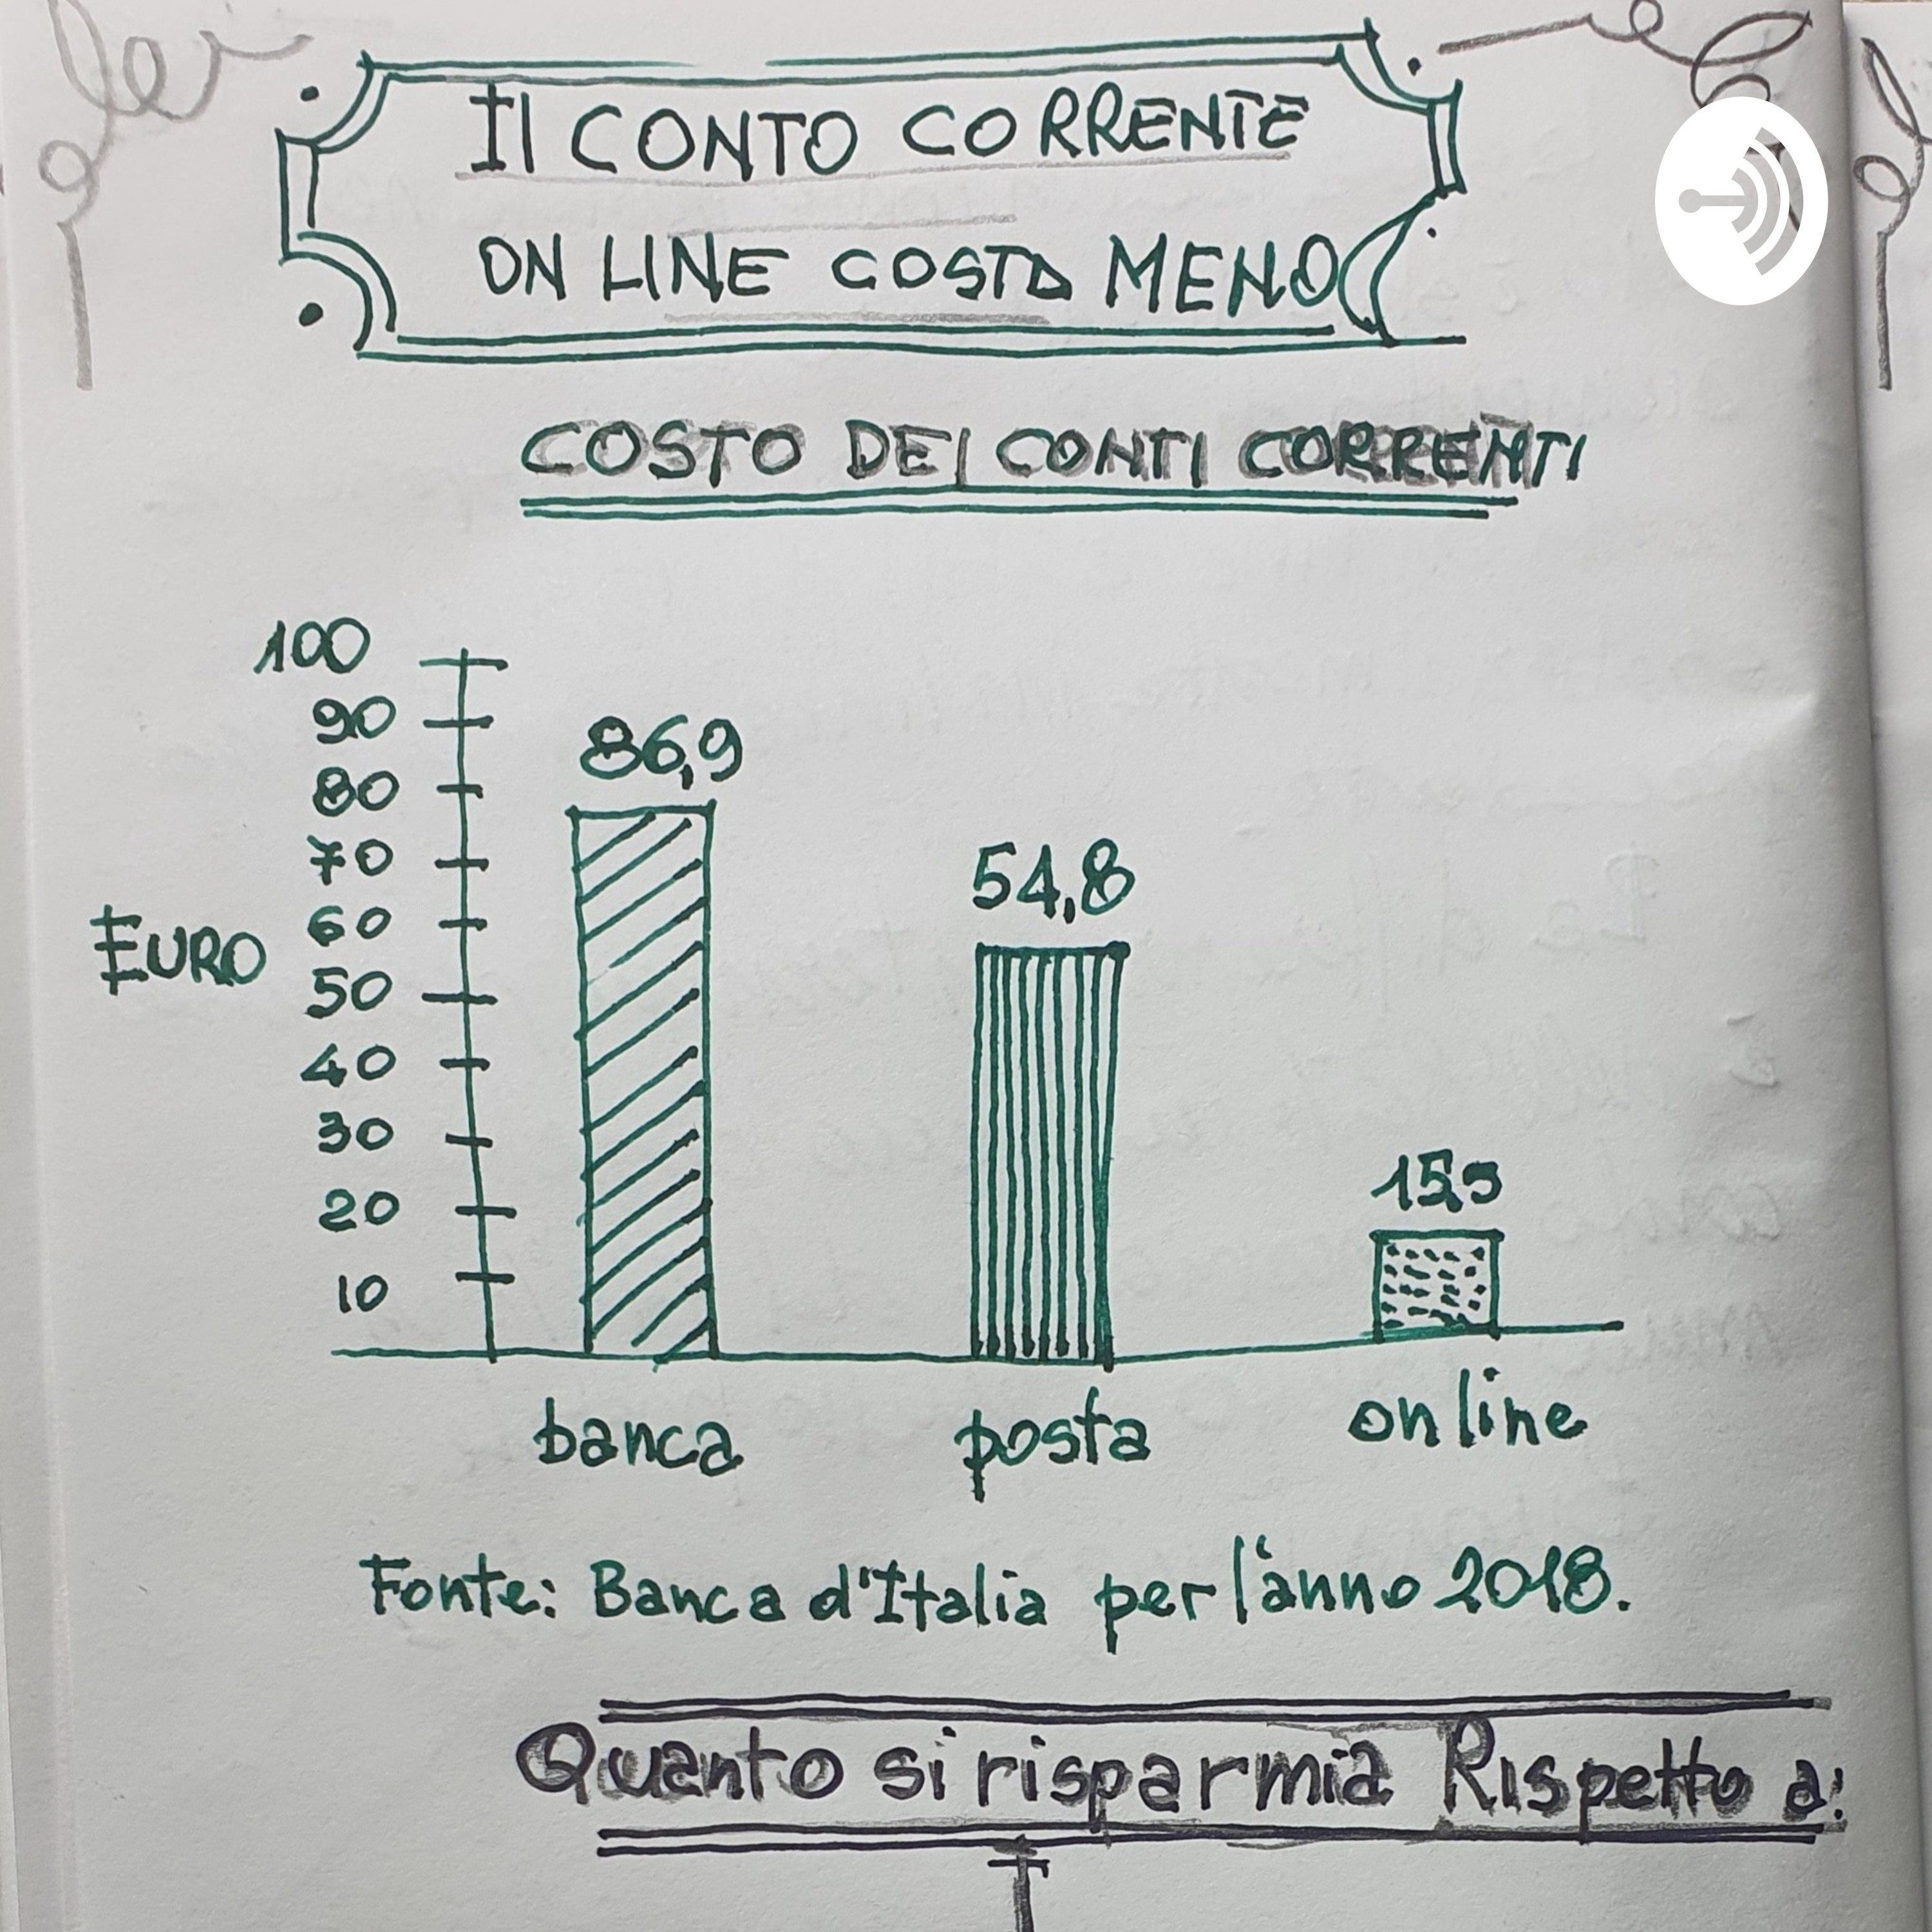 Il CONTO CORRENTE
ON LINE COSTA MENO
COSTO DEI CONTI CORRENTI
100
90
80
70
60
50
40
30
20
10
EURO
86,9
54,8
banca
posta
on line
Fonte: Banca d'Italia per l'anno 2018.
Quanto si risparmia Rispetto a: